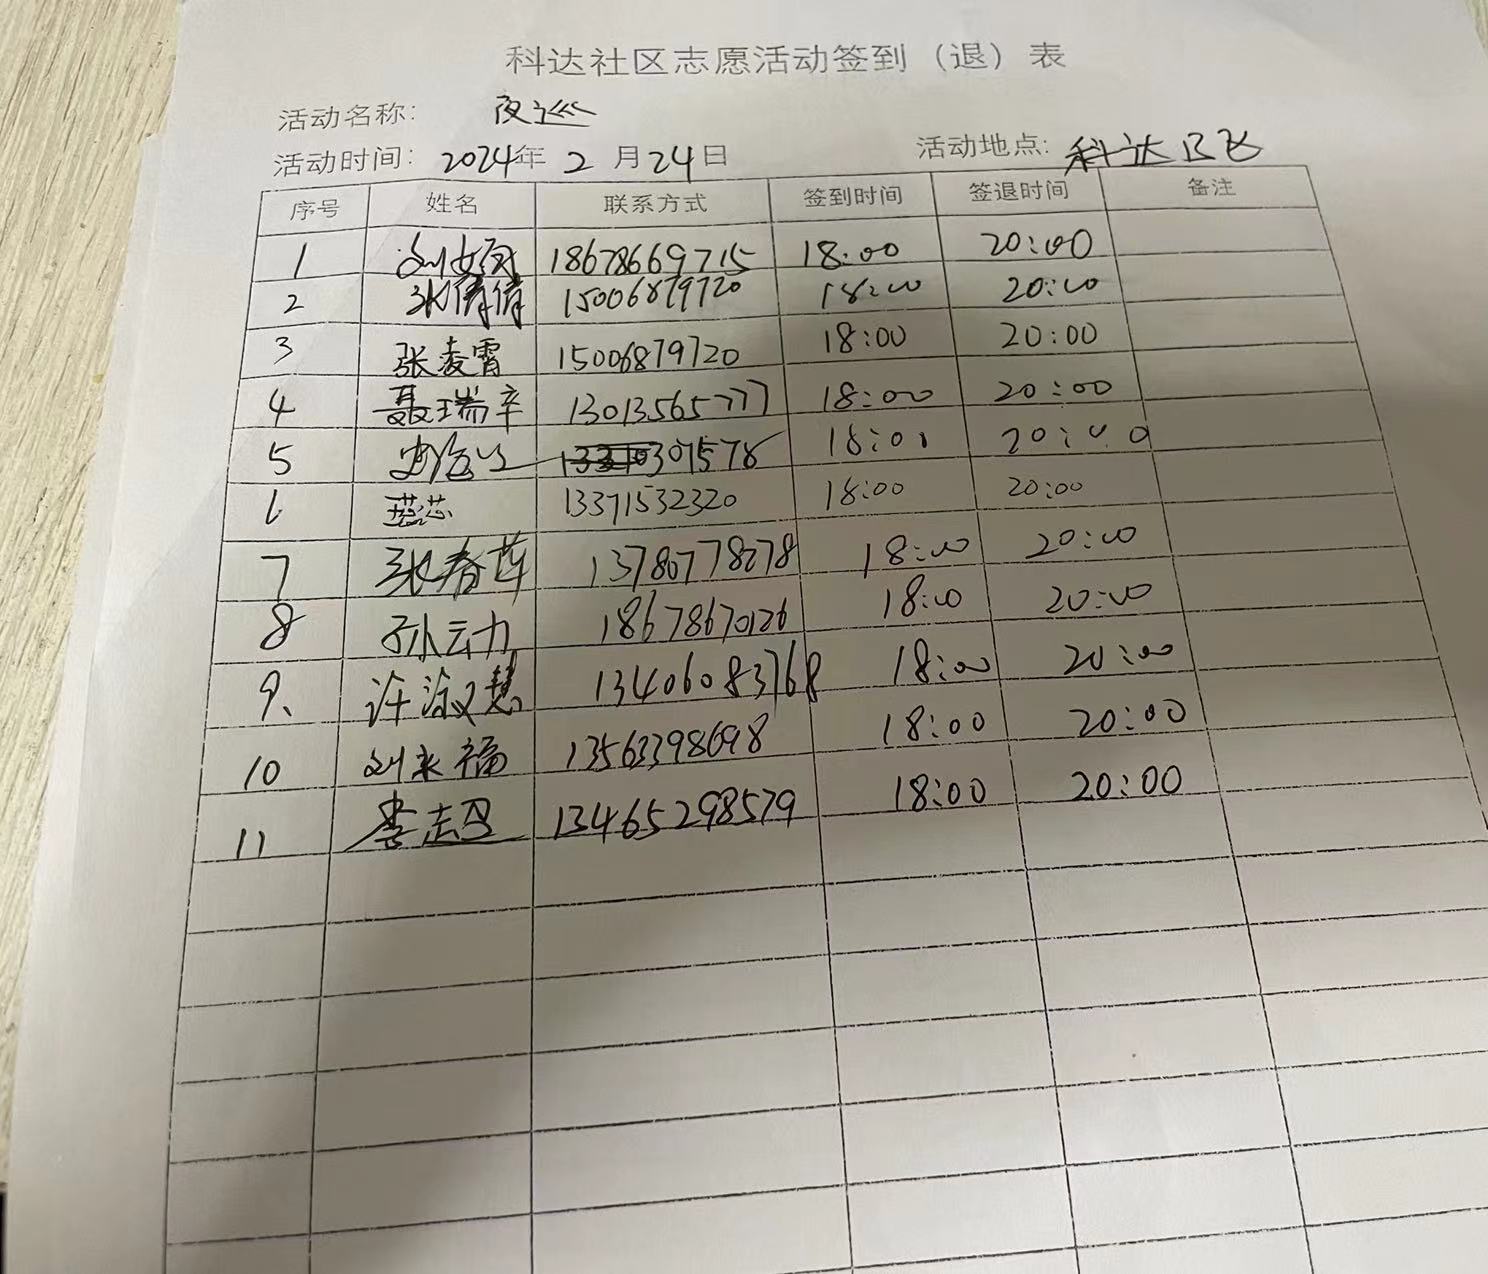 科达社区志愿活动签到（退）表
活动名称： 夜巡
活动时间： 2024年 2 月 24 日 活动地点: 科达
序号 姓名 联系方式 签到时间 签退时间 备注
1 18678669715 18:00 20:00
2 张倩倩 15006879720 18:00 20:00
3 张凌霄 15006879720 18:00 20:00
4 聂瑞辛 13013565777 18:00 20:00
5 18:00 20:00
6 13371532320 18:00 20:00
7 张春莲 13780778278 18:00 20:00
8 孙云力 18678670126 18:00 20:00
9、 许淑慧 13406083768 18:00 20:00
10 刘永福 13563398698 18:00 20:00
11 李志 13465298579 18:00 20:00